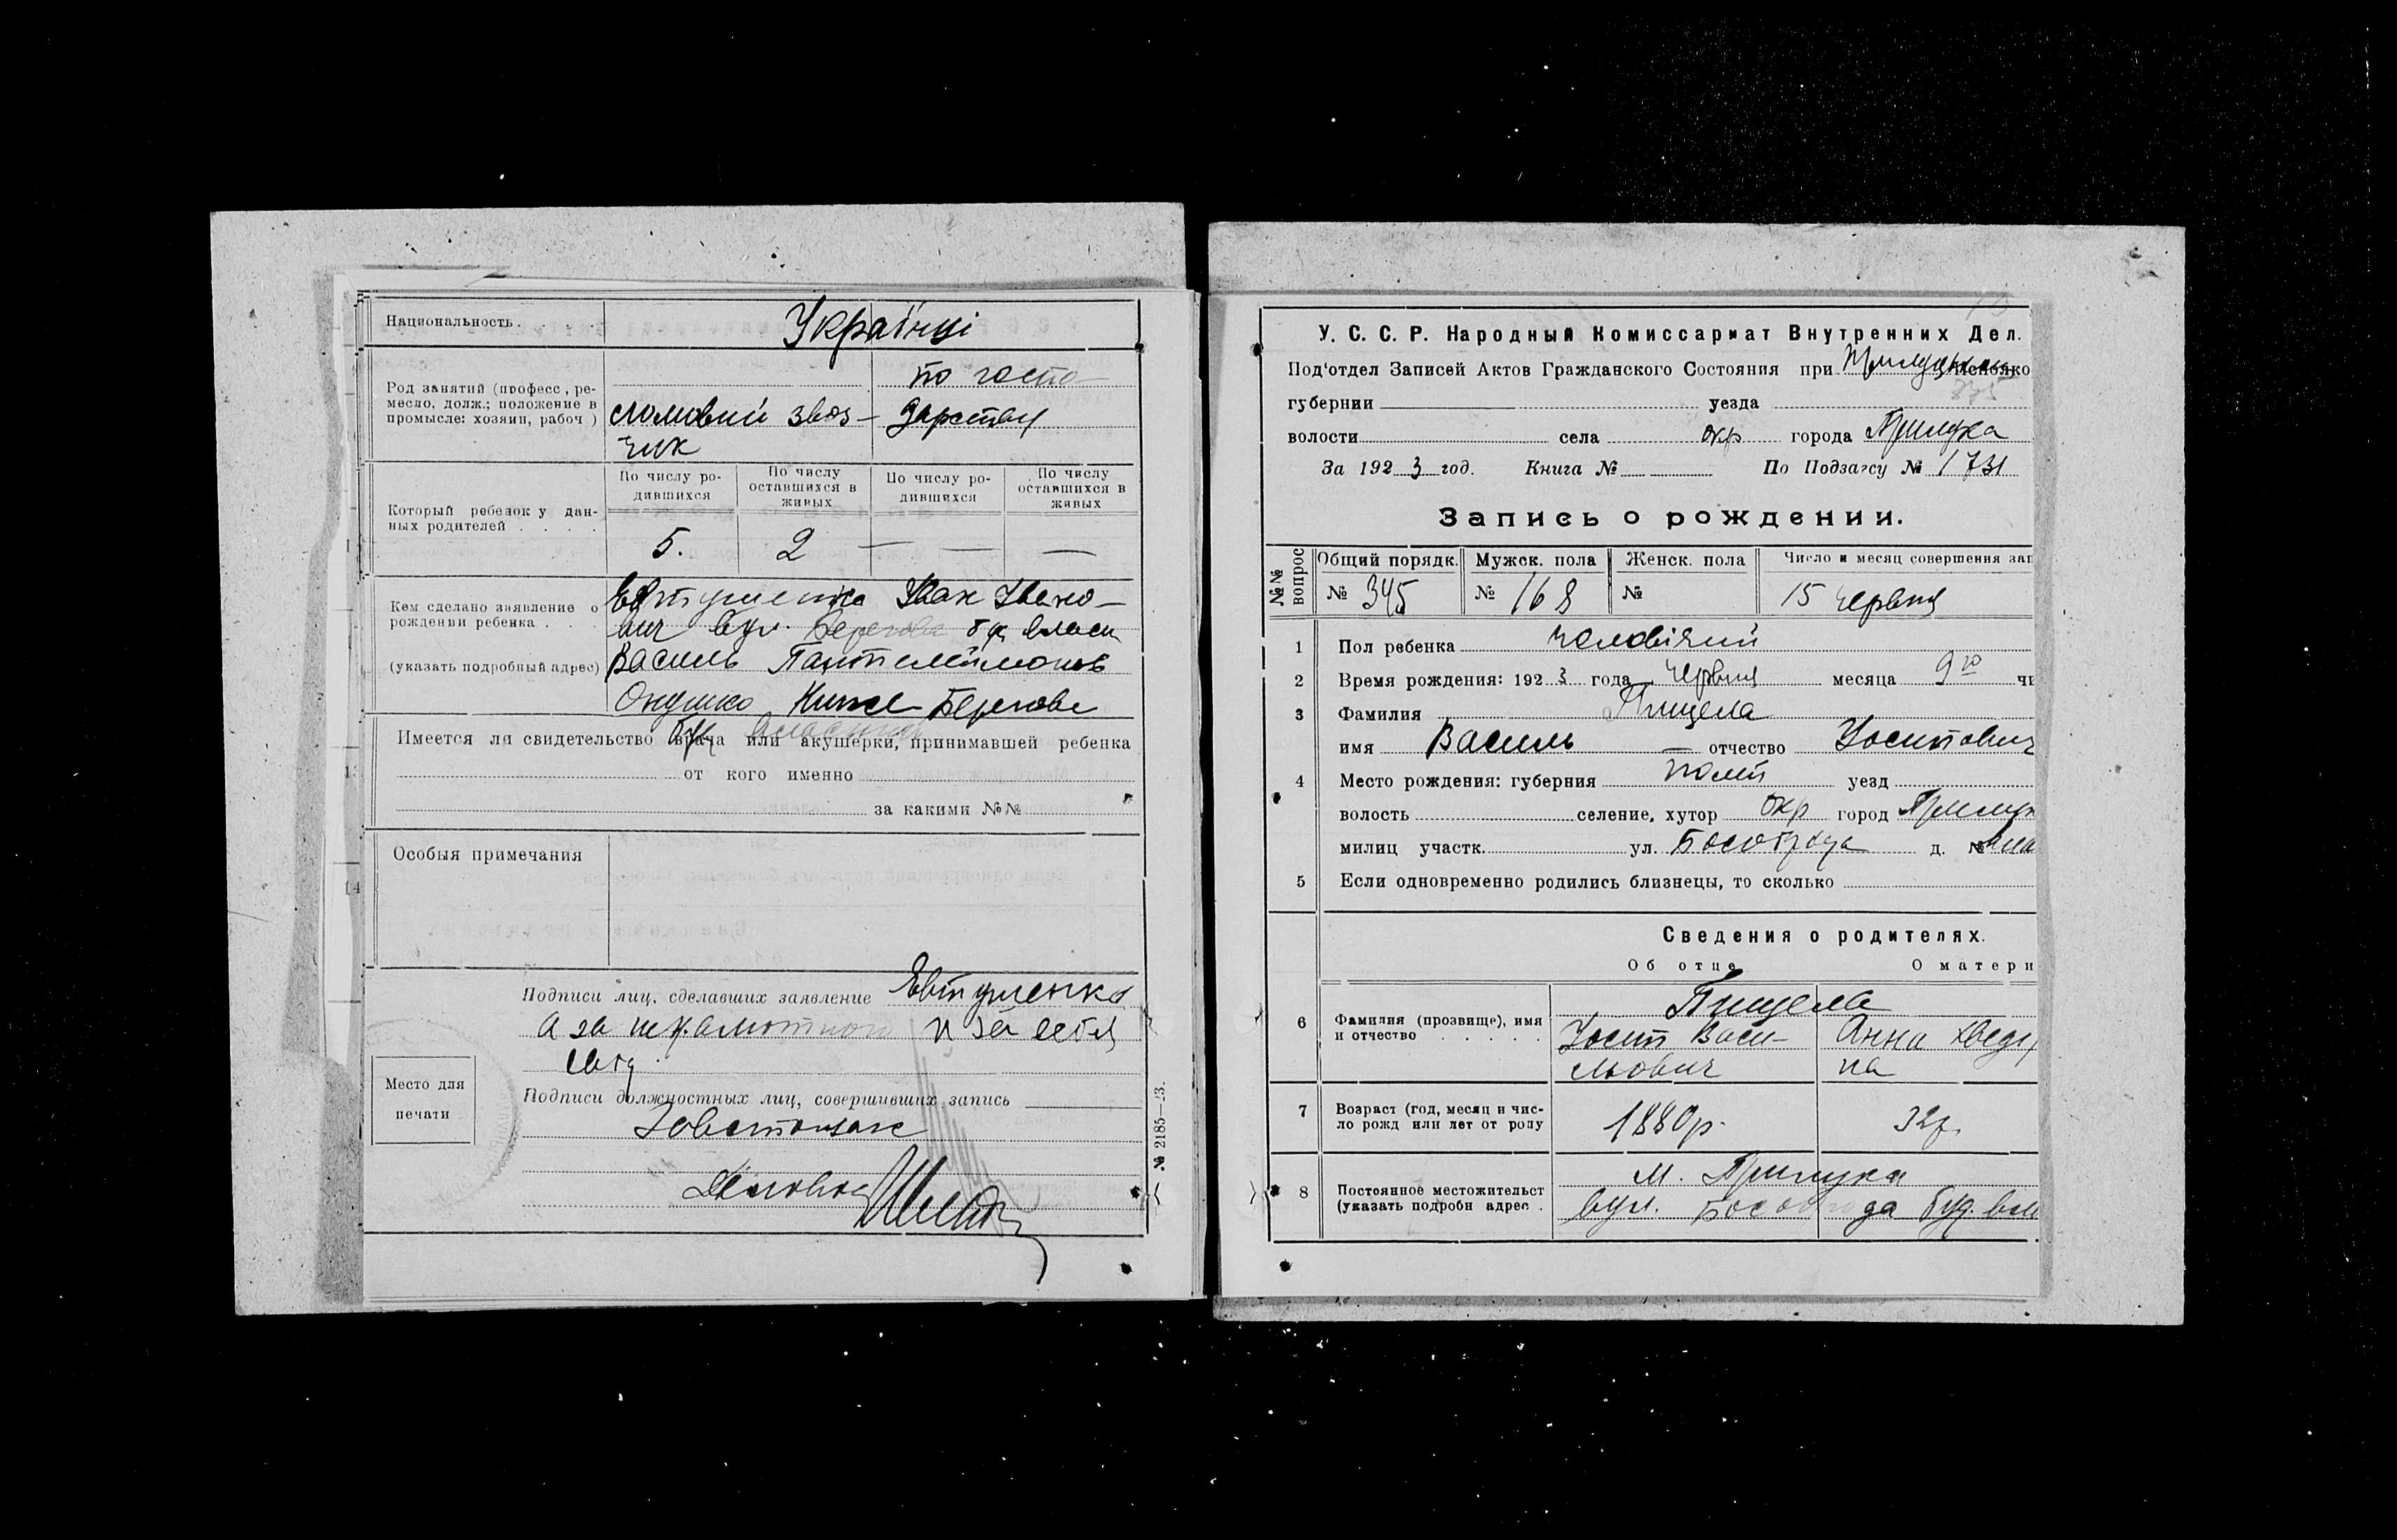 Национальность.
Українці
Род занятий (професс, ре-
месло, долж.; положение в
промысле: хозяин, рабоч )
ломовий звоз-
чик
по госпо-
дарству
Который ребенок у дан-
ных родителей . . . .
По числу ро-
дившихся
По числу
оставшихся в
живых
По числу ро-
дившихся
По числу
оставшихся в
живых
5. 2 — — —
Кем сделано заявление о
рождении ребенка . . .
(указать подробный адрес)
Евтушенко Іван Івано-
вич вул. Берегова буд власн
Василь Пантелеймонов
Онушко Берегова
буд власний
Имеется ли свидетельство врача или акушерки, принимавшей ребенка
от кого именно
за какими №№
Особыя примечания
Подписи лиц, сделавших заявление Евтушенко
А за неграмотного и за себя
Место для
печати
Подписи должностных лиц, совершивших запись
№ 2185—23.
У. С. С. Р. Народный Комиссариат Внутренних Дел.
Под'отдел Записей Актов Гражданского Состояния при
губернии уезда
волости села окр города Прилука
За 1923 год. Книга № По Подзагсу № 1731
Запись о рождении.
№№
вопрос
Общий порядк. Мужск. пола Женск. пола Число и месяц совершения зап
№ 345 № 168 № 15 червня
1 Пол ребенка чоловічий
2 Время рождения: 1923 года червня месяца 9го чи
3 Фамилия Пищела
имя Василь — отчество Йосипович
4 Место рождения: губерния Полт уезд
волость селение, хутор окр город Прилук
милиц участк. ул. Бособрода д. № вла
5 Если одновременно родились близнецы, то сколько
Сведения о родителях.
Об отце О матери
6 Фамилия (прозвище), имя
и отчество . . . . .
Пищела
Йосип Васи-
льович
Анна Хведо
на
7 Возраст (год, месяц и чис-
ло рожд или лет от роду
1880р. 32р.
8 Постоянное местожительст
(указать подробн адрес .
м. Прилука
вул. Бособрода буд. вла